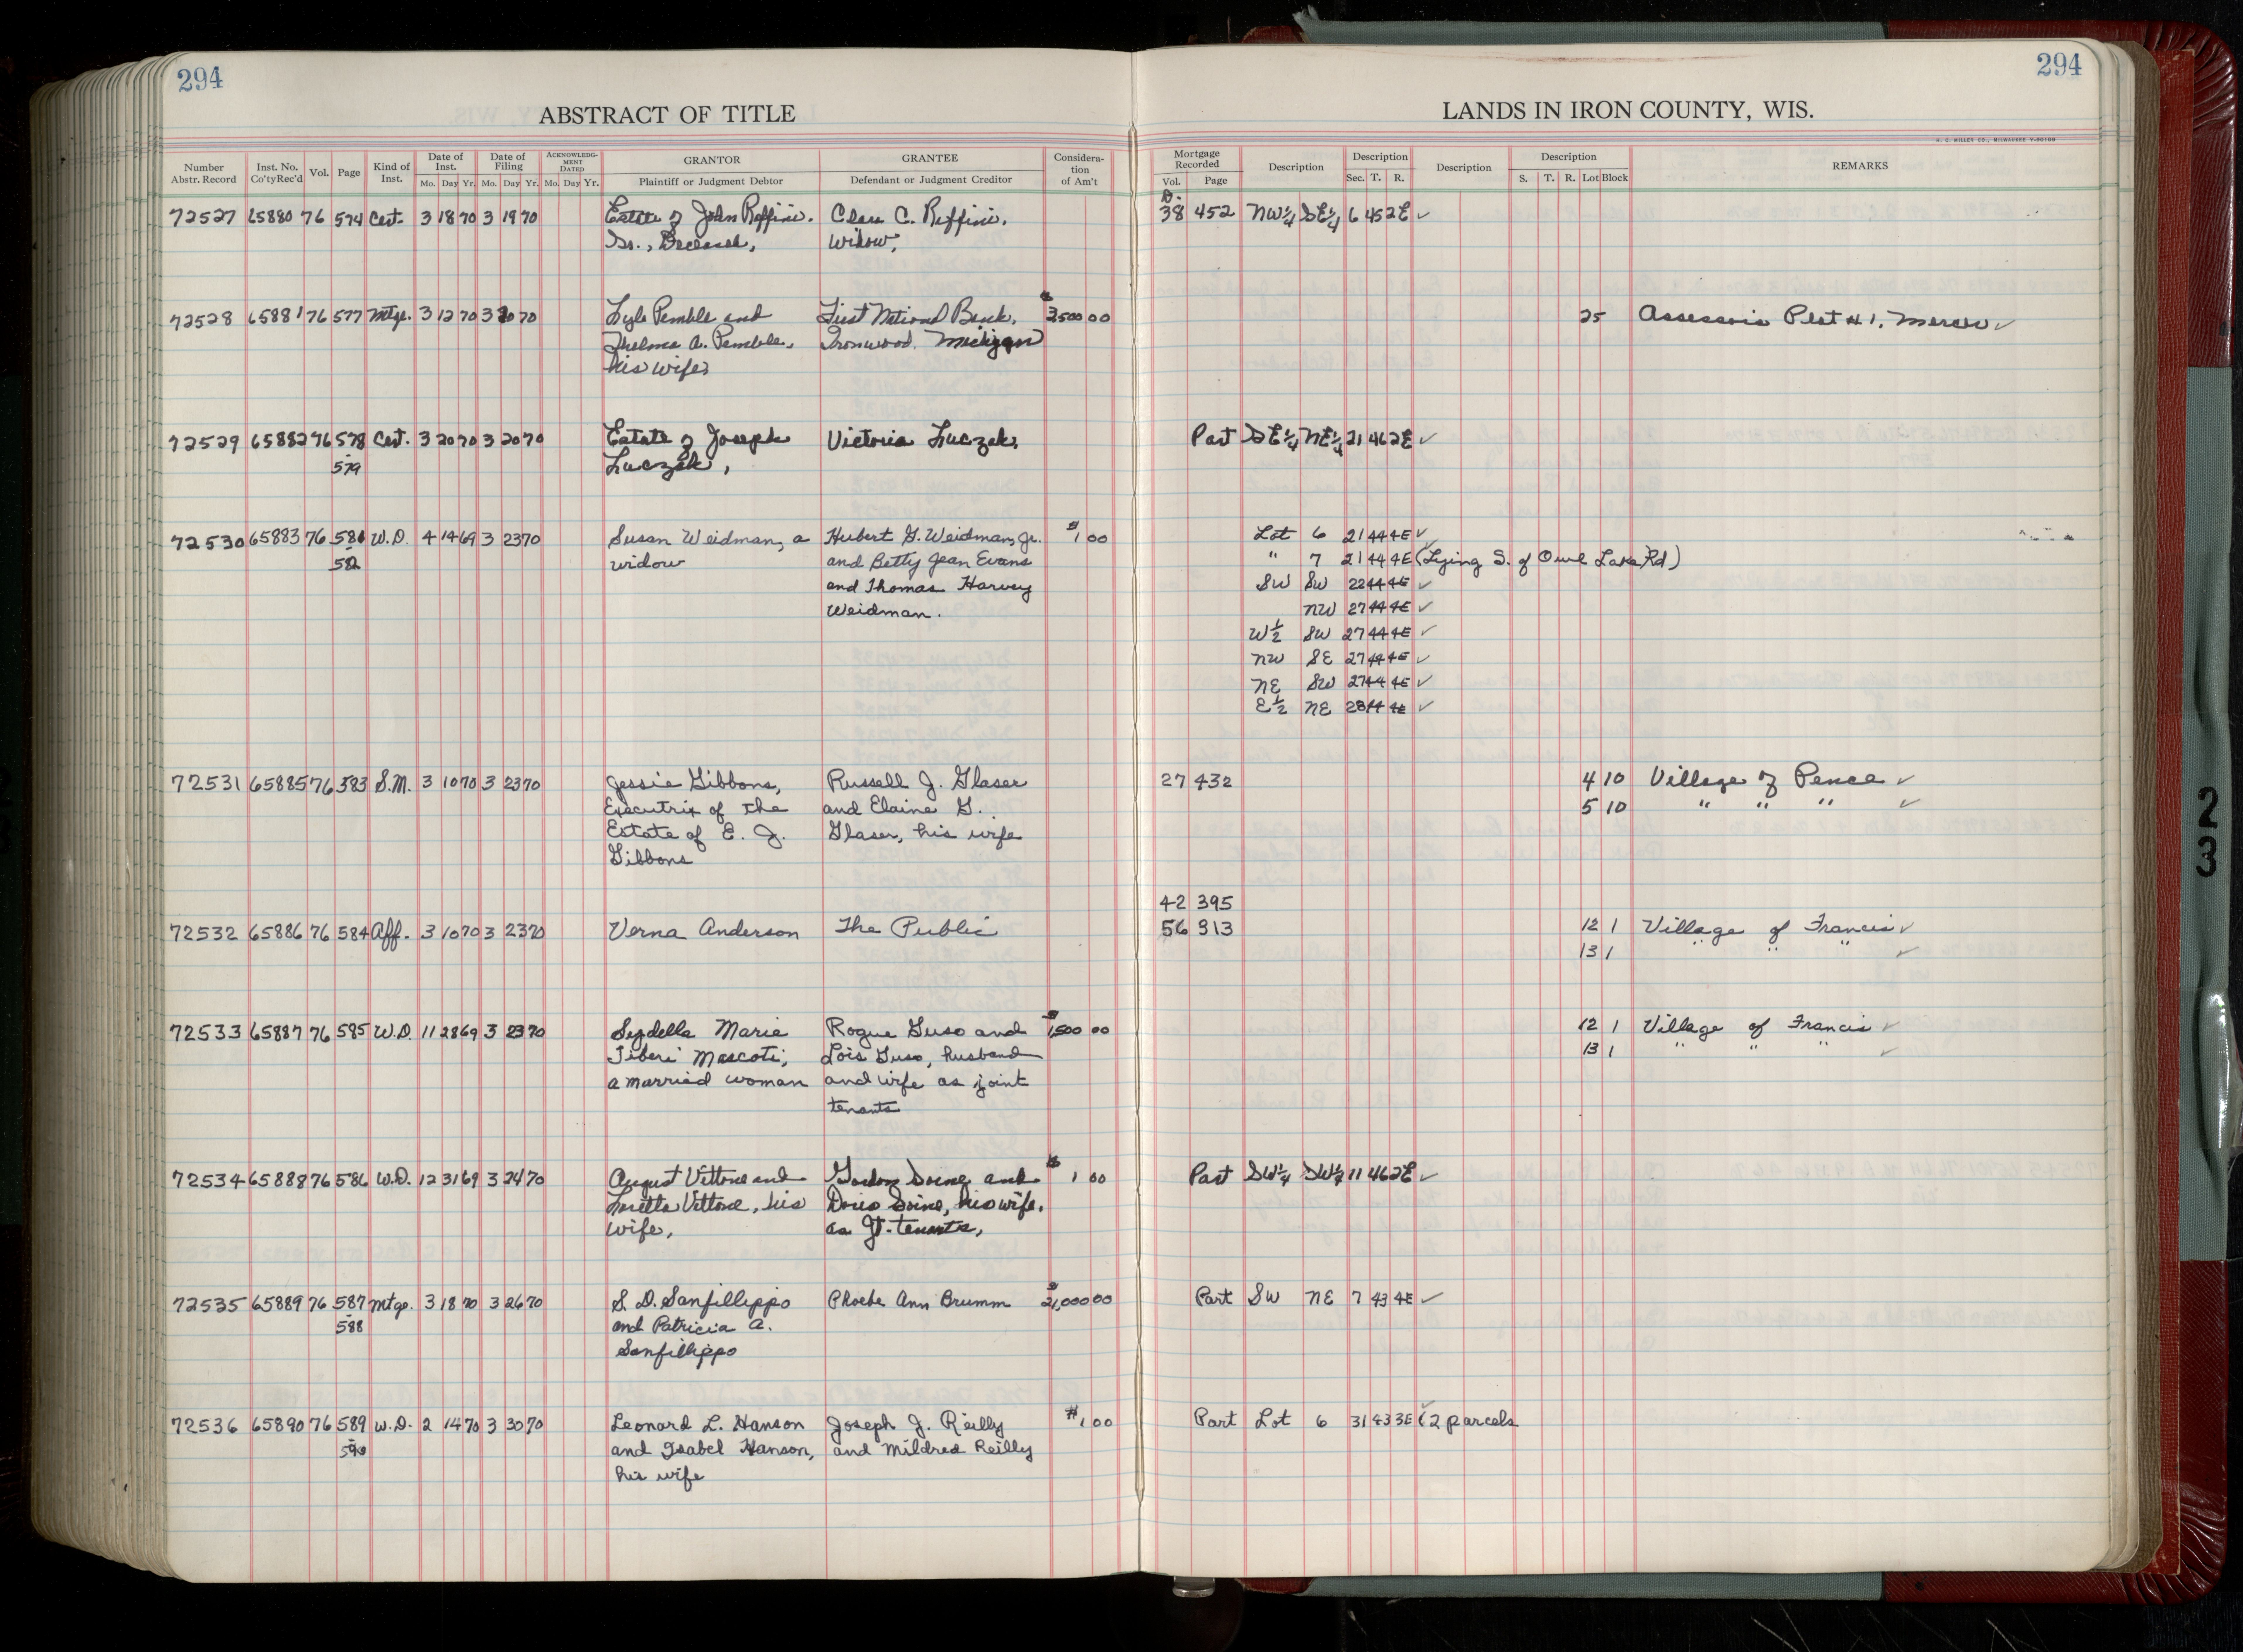 294
294
ABSTRACT OF TITLE
LANDS IN IRON COUNTY, WIS.
H. C. MILLER CO., MILWAUKEE Y-90109
Number Abstr. Record Inst. No. Co'ty Rec'd Vol. Page Kind of Inst. Date of Inst. Mo. Day Yr. Date of Filing Mo. Day Yr. ACKNOWLEDGMENT DATED Mo. Day Yr. GRANTOR Plaintiff or Judgment Debtor GRANTEE Defendant or Judgment Creditor Consideration of Am't Mortgage Recorded Vol. Page Description Description Sec. T. R. Description Description S. T. R. Lot Block REMARKS
D.
72527 65880 76 574 Cert. 3 18 70 3 19 70 Estate of John Reffini. Clara C. Reffini, 38 452 NW¼ SE¼ 6 45 2E ✓
Sr., Deceased, widow,
72528 65881 76 577 Mtge. 3 12 70 3 20 70 Lyle Pemble and First National Bank, $3,500 00 25 Assessor's Plat #1, Mercer ✓
Thelma A. Pemble, Ironwood. Michigan
his wife,
72529 65882 76 578 Cert. 3 20 70 3 20 70 Estate of Joseph Victoria Luczak, Part SE¼ NE¼ 21 46 2E ✓
579 Luczak,
72530 65883 76 581 W.D. 4 14 69 3 23 70 Susan Weidman, a Hubert G. Weidman, Jr. $1 00 Lot 6 21 44 4E ✓
582 widow and Betty Jean Evans " 7 21 44 4E (Lying S. of Owl Lake Rd)
and Thomas Harvey SW SW 22 44 4E ✓
Weidman. NW 27 44 4E ✓
W½ SW 27 44 4E ✓
NW SE 27 44 4E ✓
NE SW 27 44 4E ✓
E½ NE 28 44 4E ✓
72531 65885 76 583 S.M. 3 10 70 3 23 70 Jessie Gibbons, Russell J. Glaser 27 432 4 10 Village of Pence ✓
Executrix of the and Elaine G. 5 10 " " " ✓
Estate of E. J. Glaser, his wife
Gibbons
42 395
72532 65886 76 584 Aff. 3 10 70 3 23 70 Verna Anderson The Public 56 313 12 1 Village of Francis ✓
13 1 " " " ✓
72533 65887 76 585 W.D. 11 28 69 3 23 70 Sezdella Marie Rogue Guso and $1,500 00 12 1 Village of Francis ✓
Tiberi Mascoti, Lois Guso, husband 13 1 " " " ✓
a married woman and wife as joint
tenants
72534 65888 76 586 W.D. 12 31 69 3 24 70 August Vittone and Gordon Soine and $1 00 Part SW¼ SW¼ 11 46 2E ✓
Loretta Vittone, his Doris Soine, his wife,
wife, as Jt. tenants,
72535 65889 76 587 Mtge. 3 18 70 3 26 70 S. D. Sanfillippo Phoebe Ann Brumm $21,000 00 Part SW NE 7 43 4E ✓
588 and Patricia A.
Sanfillippo
72536 65890 76 589 W.D. 2 14 70 3 30 70 Leonard L. Hanson Joseph J. Reilly $1 00 Part Lot 6 31 43 3E ✓ (2 parcels
590 and Isabel Hanson, and Mildred Reilly
his wife
23